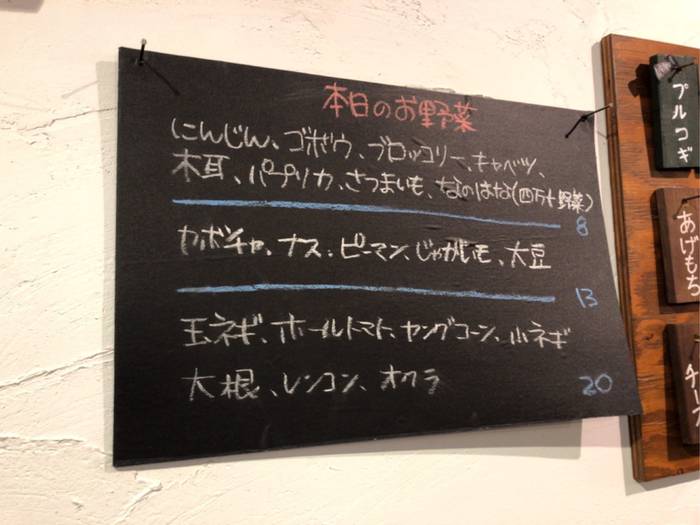 本日のお野菜
にんじん、ゴボウ、ブロッコリー、キャベツ、
木耳、パプリカ、さつまいも、なのはな(四万十野菜)
8
カボチャ、ナス、ピーマン、じゃがいも、大豆
13
玉ネギ、ホールトマト、ヤングコーン、小ネギ
大根、レンコン、オクラ
20
プルコギ
あげもち
チーズ